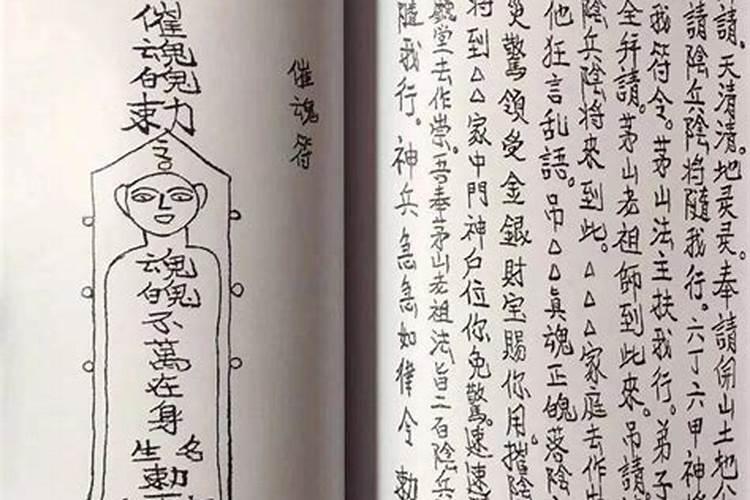 請。天清清。地灵灵。奉請開山土地公
請陰兵陰將隨我行。六丁六甲神將
我符令。茅山法主扶我行。弟子
全拜請。茅山老祖師到此來。吊請
陰兵陰將來到此。△△△家庭去作
他狂言乱語。吊△△真魂正魄落陰
災驚領受金銀財宝賜你用。摧陰
将到△△家中門神户位你免驚。速速
堂去作祟。吾奉茅山老祖法旨二百陰兵
隨我行。神兵急急如律令 勅
催魂符
催魂魄勅
魂魄不萬在身
生勅名